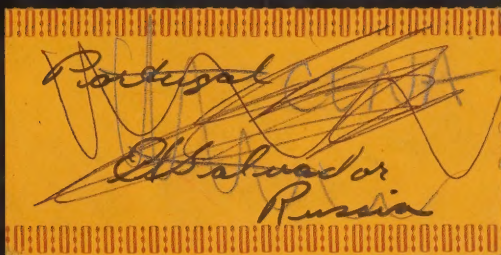 Portugal
El Salvador
Russia